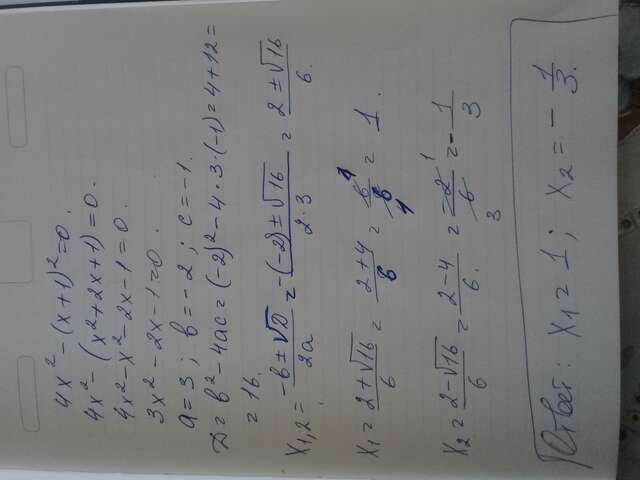 4x² - (x+1)² = 0.
4x² - (x² + 2x + 1) = 0.
4x² - x² - 2x - 1 = 0.
3x² - 2x - 1 = 0.
a = 3; b = -2; c = -1.
D = b² - 4ac = (-2)² - 4·3·(-1) = 4 + 12 =
= 16.
x₁,₂ = (-b ± √D)/2a = (-(-2) ± √16)/(2·3) = (2 ± √16)/6.
x₁ = (2 + √16)/6 = (2+4)/6 = 6¹/6₁ = 1.
x₂ = (2 - √16)/6 = (2-4)/6. = -2¹/6₃ = -1/3
Ответ: x₁ = 1; x₂ = -1/3.